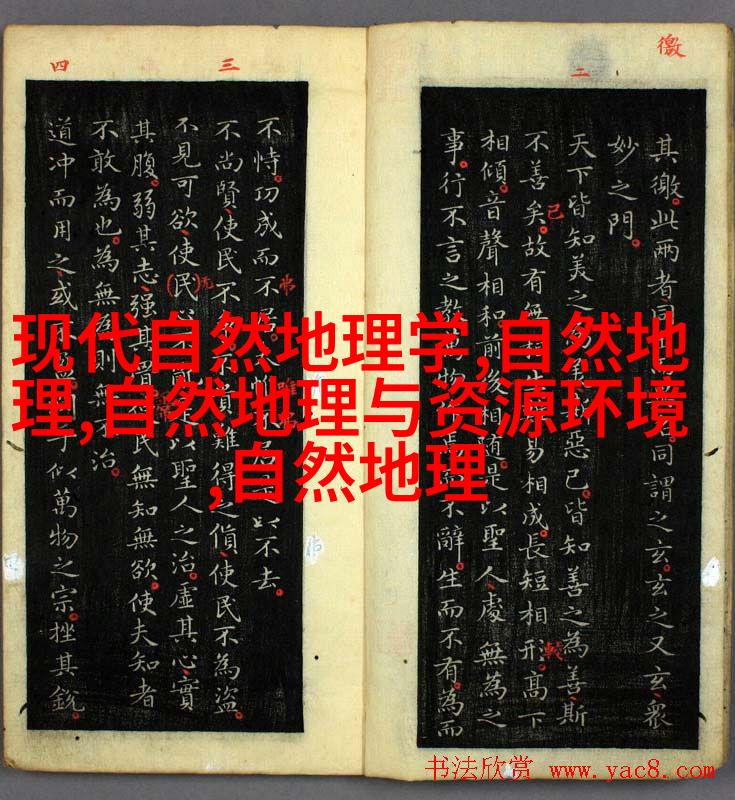 现代自然地理学,自然地
理,自然地理与资源环境
,自然地理
徼
二
其徼。此兩者同同謂之玄。玄之又玄。衆
妙之門。
天下皆知美之惡已。皆知善之為善斯
不善矣。故有無相易相成。長短相形。高下
相傾。音聲相和。前後相随。是以聖人處無為之
事。行不言之教。物而不辭。生而不有。為而
已
較
三
四
不恃。功成而不居。以不去。
不尚賢。使民不難得之貨。使民不為盜。
不見可欲。使民以聖人之治。虛其心。實
其腹。弱其志。强其民無知無欲。使夫知者
不敢為也。為無為則無不治。
道冲而用之。或不乎似萬物之宗。挫其銳。
无
书法欣赏 www.yac8.com